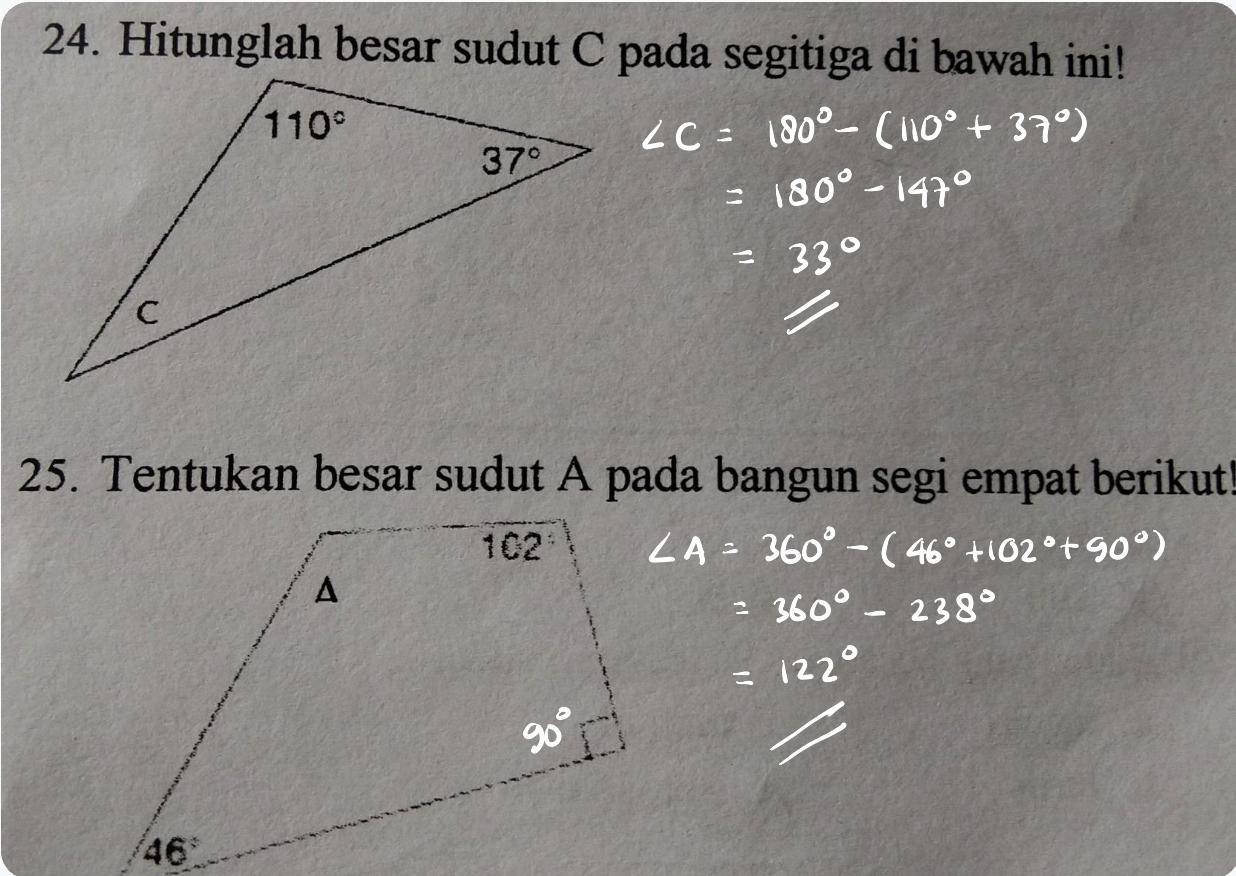 24. Hitunglah besar sudut C pada segitiga di bawah ini!
110°
37°
C
∠C = 180° - (110° + 37°)
= 180° - 147°
= 33°
25. Tentukan besar sudut A pada bangun segi empat berikut!
102°
A
90°
46°
∠A = 360° - (46° + 102° + 90°)
= 360° - 238°
= 122°